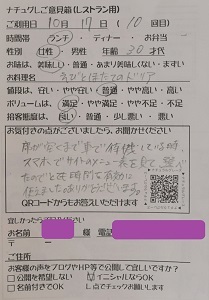 ナチュグしご意見箱(レストラン用)
ご利用日 10月 17日 (10回目)
時間帯 ランチ・ ディナー ・ お弁当
性別 女性 男性 年齢 30 才代
お味は 美味しい・普通・あまり美味しくない・まずい
お料理名 えびとほたてのドリア
値段は、安い・やや安い・普通・やや高い・高い
ボリュームは、満足・やや満足・やや不足・不足
接客態度は、良い・普通・少し悪い・悪い
お気付きの点がございましたら、お聞かせください
席が空くまで車で待機している時、
スマホでサイトのメニュー表を見て、
たのでとても時間を有効に
QRコードからもお答えいただけます
宜しかったらご記入ください
お名前 様 電話
ご住所
お客様の声をブログやHP等で公開して宜しいですか?
□公開を希望しない イニシャルならOK
□名前付きでOK し点でチェックお願いします